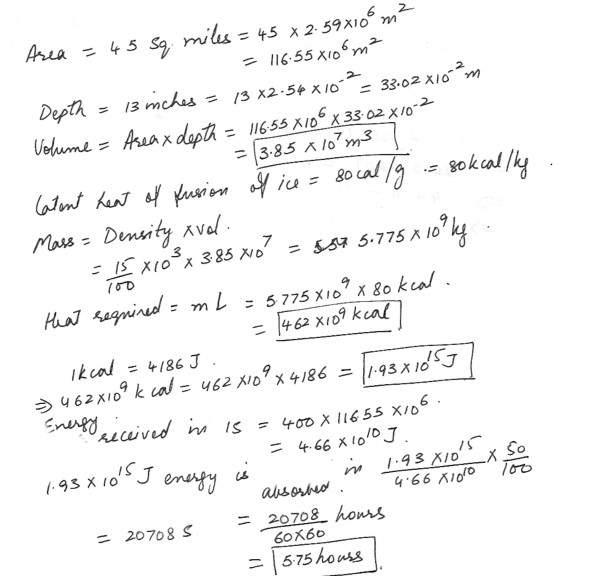 Area = 45 Sq. miles = 45 × 2.59×10⁶ m²
= 116.55×10⁶ m²
Depth = 13 inches = 13 ×2.54 ×10⁻² = 33.02 ×10⁻² m
Volume = Area×depth = 116.55 ×10⁶ × 33.02 ×10⁻²
= 3.85 ×10⁷ m³
Latent heat of fusion of ice = 80 cal/g = 80 kcal/kg.
Mass = Density × vol.
= 15/100 ×10³ × 3.85 ×10⁷ = 5.775 × 10⁹ kg.
Heat required = mL = 5.775 ×10⁹ × 80 kcal.
= 462 ×10⁹ kcal
1 kcal = 4186 J.
⇒ 462×10⁹ kcal = 462 ×10⁹ × 4186 = 1.93 ×10¹⁵ J
Energy received in 1s = 400 × 116.55 ×10⁶.
= 4.66 ×10¹⁰ J.
1.93 ×10¹⁵ J energy is absorbed in 1.93 ×10¹⁵/4.66 ×10¹⁰ × 50/100
= 20708 s = 20708/60×60 hours
= 5.75 hours.